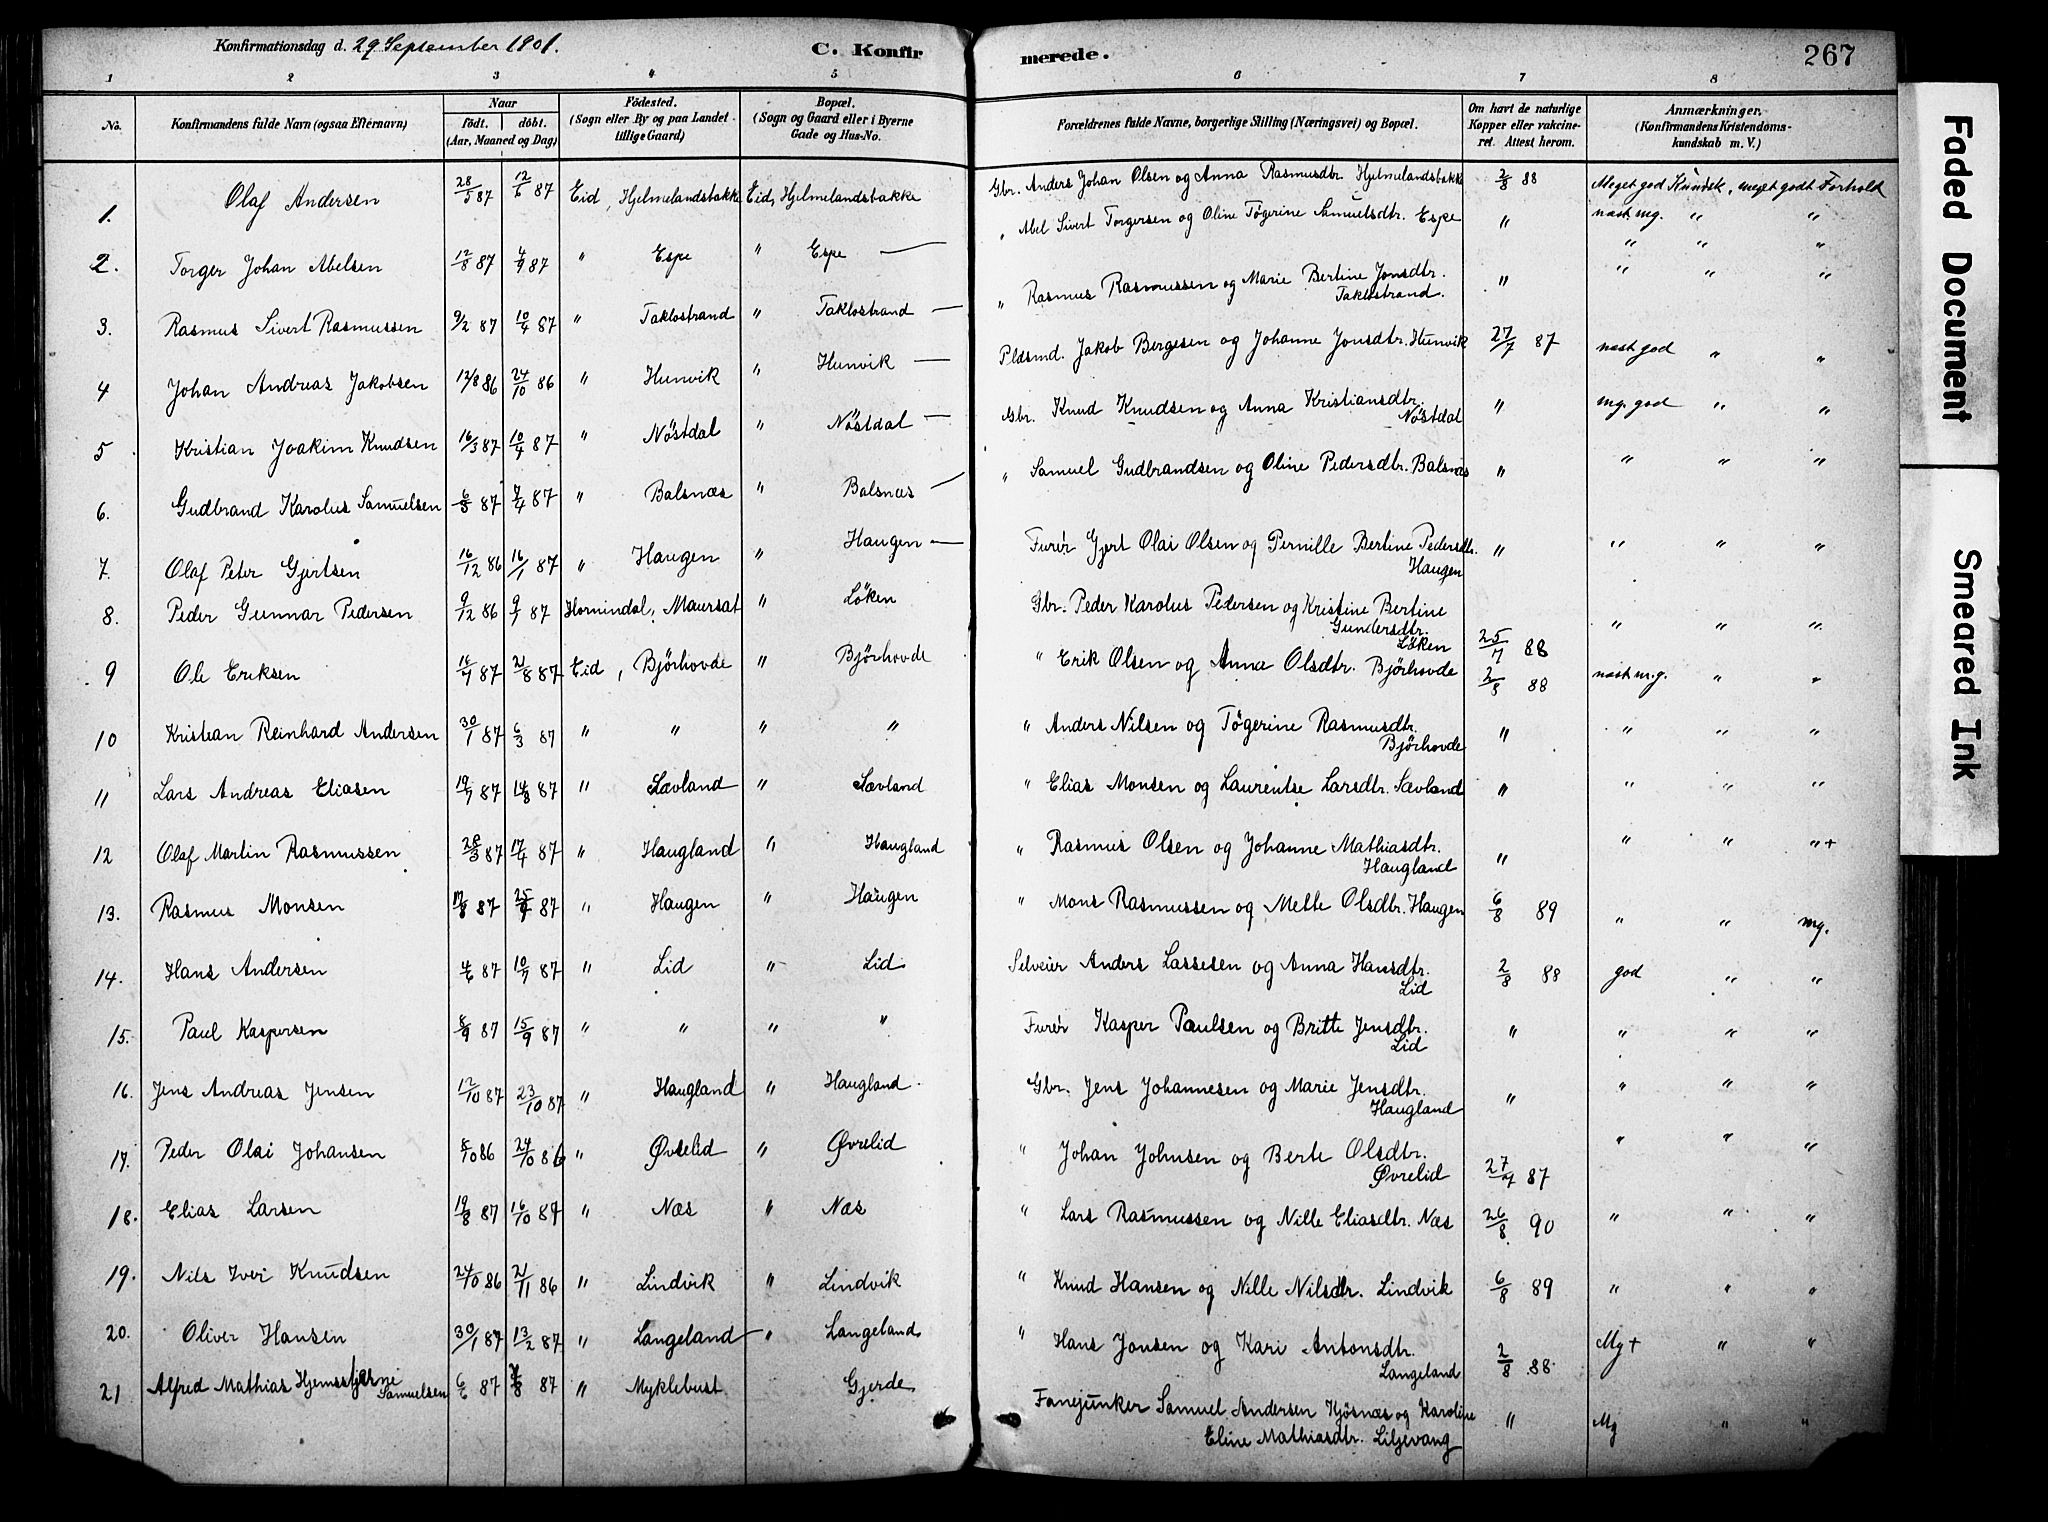 Konfirmationsdag d. 29 September 1901. C. Konfir merede. 267
1 2 3 4 5 6 7 8
No. Konfirmandens fulde Navn (ogsaa Efternavn) Naar født. døbt. (Aar, Maaned og Dag) Fødested. (Sogn eller By og paa Landet tillige Gaard) Bopæl. (Sogn og Gaard eller i Byerne Gade og Hus-No. Forældrenes fulde Navne, borgerlige Stilling (Næringsvei) og Bopæl. Om havt de naturlige Kopper eller vakcineret. Attest herom. Anmærkninger, (Konfirmandens Kristendomskundskab m. V.)
1. Olaf Andersen 28/5 87 12/6 87 Eid, Hjelmelandsbakke Eid, Hjelmelandsbakke Gbr. Anders Johan Olsen og Anna Rasmusdtr. Hjelmelandsbakke 2/8 88 Meget god Kundsk, meget godt Forhold
2. Torger Johan Abelsen 12/8 87 4/9 87 " Espe " Espe — " Abel Sivert Torgersen og Oline Tøgerine Samuelsdtr. Espe " næst mg. " "
" " "
3. Rasmus Sivert Rasmussen 9/2 87 10/4 87 " Taklostrand " Taklostrand — " Rasmus Rasmussen og Marie Bertine Jonsdtr. Taklostrand. " " " "
4 Johan Andreas Jakobsen 12/8 86 24/10 86 " Hunvik " Hunvik — Pldsmd. Jakob Bergesen og Johanne Jonsdtr. Hunvik 27/7 87 næst god " "
5 Kristian Joakim Knudsen 16/3 87 10/4 87 " Nøstdal " Nøstdal — Gbr. Knud Knudsen og Anna Kristiansdtr. Nøstdal " mg. god " "
6. Gudbrand Karolus Samuelsen 6/3 87 /4 87 " Balsnæs " Balsnæs — " Samuel Gudbrandsen og Oline Pedersdtr. Balsnæs " " " "
7. Olaf Peter Gjertsen 16/12 86 16/1 87 " Haugen " Haugen — Furér Gjert Olai Olsen og Pernille Bertine Pedersdtr. Haugen " " " "
8. Peder Gunnar Pedersen 9/12 86 9/1 87 Hornindal, Maursat " Løken Gbr. Peder Karolus Pedersen og Kristine Bertine Gundersdtr. Løken 25/7 88 " " "
9 Ole Eriksen 16/7 87 21/8 87 Eid, Bjørhovde " Bjørhovde " Erik Olsen og Anna Olsdtr. Bjørhovde 2/8 88 næst m.g. " "
10 Kristian Reinhard Andersen 30/1 87 6/3 87 " " " " " Anders Nilsen og Tøgerine Rasmusdtr. Bjørhovde " " " "
11 Lars Andreas Eliasen 19/7 87 14/8 87 " Sævland " Sævland " Elias Monsen og Laurentse Larsdtr. Sævland " " " "
12 Olaf Martin Rasmussen 28/3 87 17/4 87 " Haugland " Haugland " Rasmus Olsen og Johanne Mathiasdtr. Haugland " " " "+
13. Rasmus Monsen 17/8 87 25/9 87 " Haugen " Haugen " Mons Rasmussen og Mette Olsdtr. Haugen 6/8 89 " " mg.
14. Hans Andersen 4/6 87 10/7 87 " Lid " Lid Selveier Anders Lassesen og Anna Hansdtr. Lid 2/8 88 god " "
15. Paul Kaspersen 8/9 87 15/9 87 " " " " Furér Kasper Paulsen og Britte Jensdtr. Lid " " " "
16. Jens Andreas Jensen 12/10 87 23/10 87 " Haugland " Haugland Gbr. Jens Johannesen og Marie Jensdtr. Haugland " " " "
17. Peder Olai Johansen 8/10 86 24/10 86 " Øvrelid " Øvrelid " Johan Johnsen og Berte Olsdtr. Øvrelid 27/7 87 " " "
18. Elias Larsen 19/8 87 16/10 87 " Næs " Næs " Lars Rasmussen og Nille Eliasdtr. Næs 26/8 90 " " "
19. Nils Iver Knudsen 24/10 86 21/11 86 " Lindvik " Lindvik " Knud Hansen og Nille Nilsdtr. Lindvik 6/8 89 " " "
20. Oliver Hansen 30/1 87 13/2 87 " Langeland " Langeland " Hans Jonsen og Kari Antonsdtr. Langeland 2/8 88. Mg+ " "
21 Alfred Mathias Hjemsstjerne Samuelsen 6/6 87 /8 87 " Myklebust Gjerde Fanejunker Samuel Andersen Kjøsnæs og Karoline Eline Mathiasdtr. Liljevang " Mg " "
Faded Document
Smeared Ink